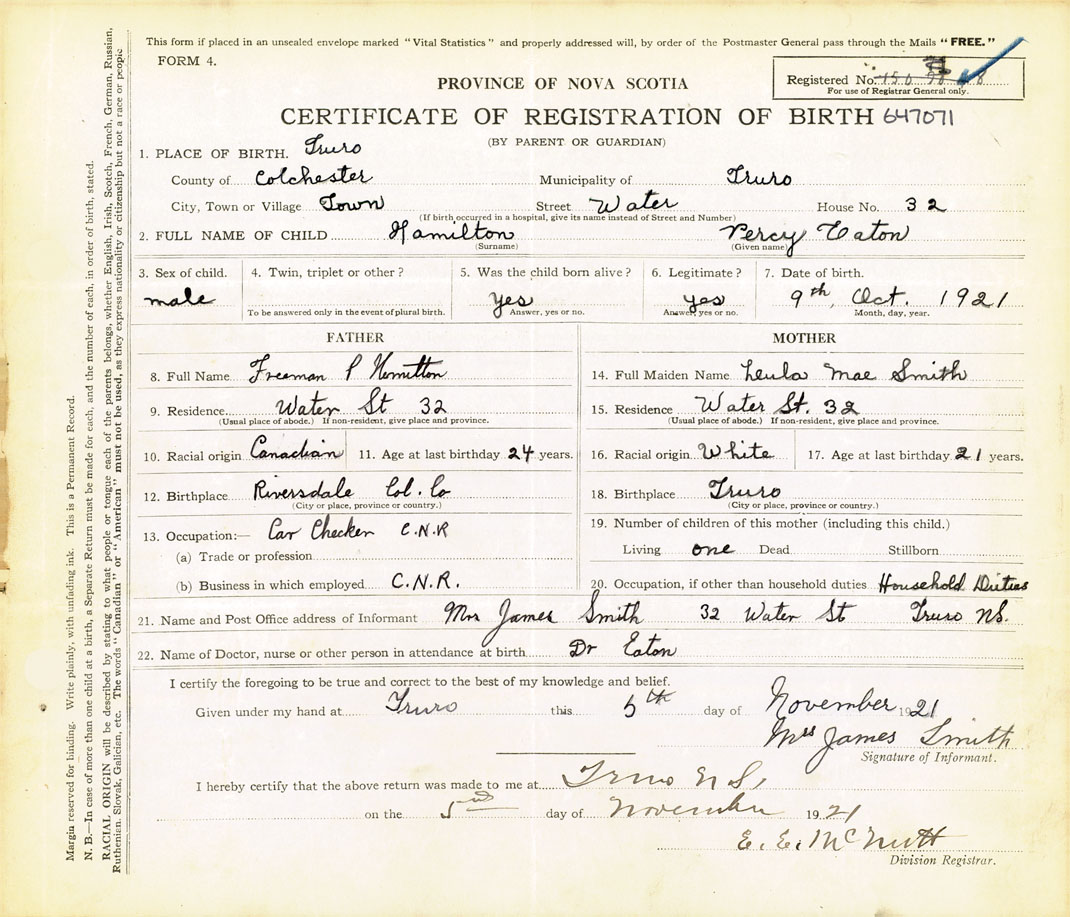 This form if placed in an unsealed envelope marked "Vital Statistics" and properly addressed will, by order of the Postmaster General pass through the Mails "FREE."
FORM 4.
Registered No.
For use of Registrar General only.
PROVINCE OF NOVA SCOTIA
CERTIFICATE OF REGISTRATION OF BIRTH 647071
(BY PARENT OR GUARDIAN)
1. PLACE OF BIRTH. Truro
County of Colchester Municipality of Truro
City, Town or Village Town Street Water House No. 32
(If birth occurred in a hospital, give its name instead of Street and Number)
2. FULL NAME OF CHILD Hamilton Percy Eaton
(Surname) (Given name)
3. Sex of child. 4. Twin, triplet or other? 5. Was the child born alive? 6. Legitimate? 7. Date of birth.
male yes yes 9th, Oct. 1921
To be answered only in the event of plural birth. Answer, yes or no. Answer, yes or no. Month, day, year.
FATHER MOTHER
8. Full Name Freeman P Hamilton 14. Full Maiden Name Leula Mae Smith
9. Residence Water St 32 15. Residence Water St. 32
(Usual place of abode.) If non-resident, give place and province. (Usual place of abode.) If non-resident, give place and province.
10. Racial origin Canadian 11. Age at last birthday 24 years. 16. Racial origin White 17. Age at last birthday 21 years.
12. Birthplace Riversdale Col. Co 18. Birthplace Truro
(City or place, province or country.) (City or place, province or country.)
13. Occupation:— Car Checker C.N.R 19. Number of children of this mother (including this child.)
(a) Trade or profession Living one Dead Stillborn
(b) Business in which employed C.N.R. 20. Occupation, if other than household duties Household Duties
21. Name and Post Office address of Informant Mrs James Smith 32 Water St Truro NS.
22. Name of Doctor, nurse or other person in attendance at birth Dr Eaton
I certify the foregoing to be true and correct to the best of my knowledge and belief.
Given under my hand at Truro this 5th day of November 1921
Mrs James Smith
Signature of Informant.
I hereby certify that the above return was made to me at Truro N S,
on the 5 day of November 1921
E. E. McNutt
Division Registrar.
Margin reserved for binding. Write plainly, with unfading ink. This is a Permanent Record.
N. B.—In case of more than one child at a birth, a Separate Return must be made for each, and the number of each, in order of birth, stated.
RACIAL ORIGIN will be described by stating to what people or tongue each of the parents belongs, whether English, Irish, Scotch, French, German, Russian,
Ruthenian, Slovak, Galician, etc. The words "Canadian" or "American" must not be used, as they express nationality or citizenship but not a race or people